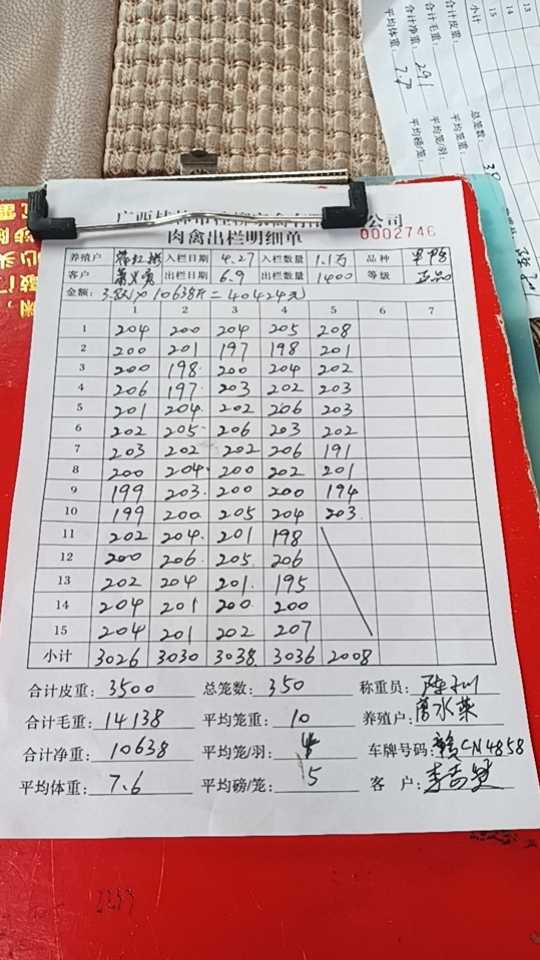 肉禽出栏明细单
0002746
养殖户 入栏日期 4.27 入栏数量 1.1万 品种
客户 出栏日期 6.9 出栏数量 1400 等级 正品
金额: 10638斤=40424元
1 2 3 4 5 6 7
1 204 200 204 205 208
2 200 201 197 198 201
3 200 198 200 204 202
4 206 197 203 202 203
5 201 204 202 206 203
6 202 205 206 203 202
7 203 202 202 206 191
8 200 204 200 202 201
9 199 203 200 200 194
10 199 200 205 204 203
11 202 204 201 198
12 200 206 205 206
13 202 204 201 195
14 204 201 200 200
15 204 201 202 207
小计 3026 3030 3038 3036 2008
合计皮重: 3500 总笼数: 350 称重员:
合计毛重: 14138 平均笼重: 10 养殖户:
合计净重: 10638 平均笼/羽: 4 车牌号码: 赣CN4858
平均体重: 7.6 平均磅/笼: 5 客 户:
13
14
15
小计
合计皮重:
合计毛重: 291
合计净重:
平均体重: 7.7
总笼数: 38
平均笼重:
平均笼/羽:
平均磅/笼: